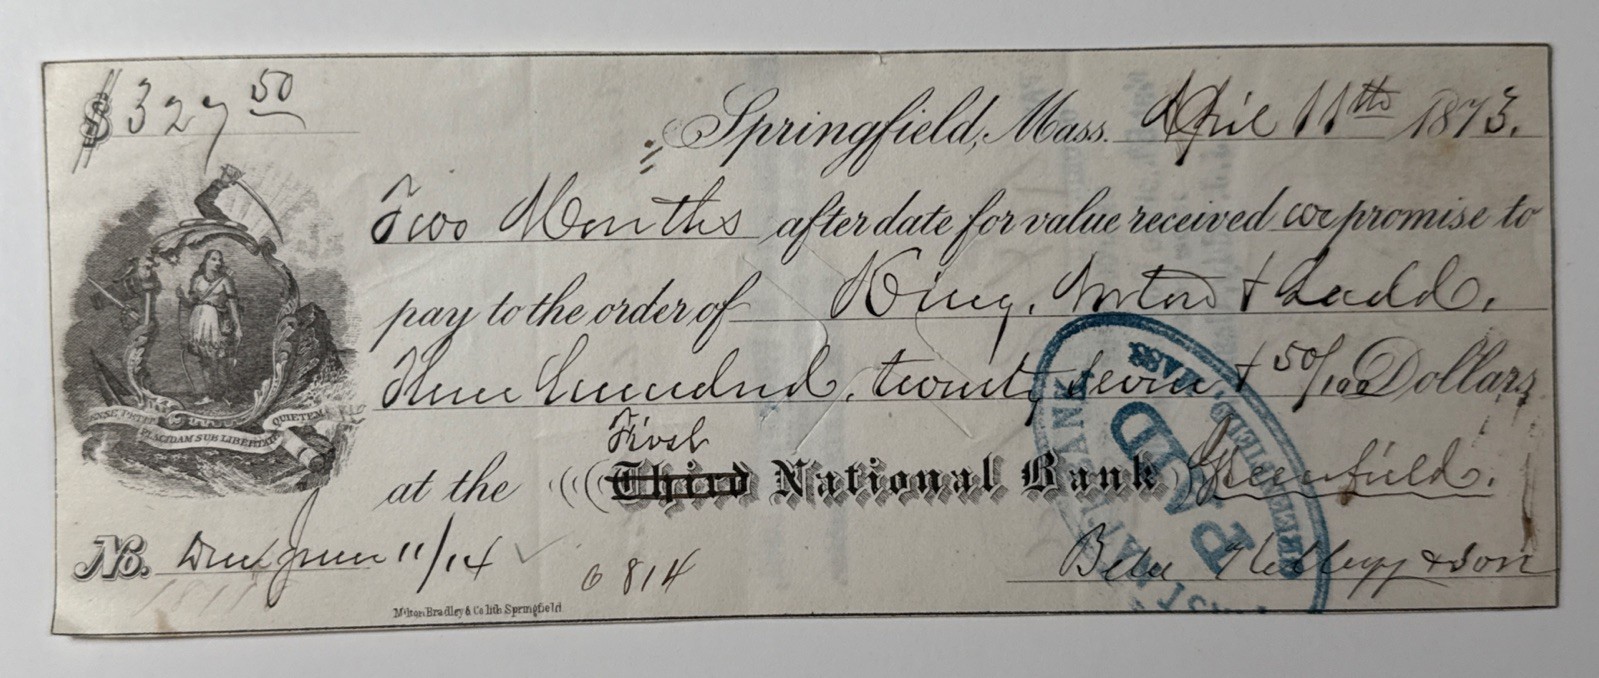 $327 50
Springfield, Mass. April 11th 1873.
Two Months after date for value received we promise to
pay to the order of King, Norton & Ladd.
Three hundred, twenty seven & 50/100 Dollars
at the First Third National Bank Greenfield.
No. Due June 11/14 6814
& Son
ENSE PETIT PLACIDAM SUB LIBERTATE QUIETEM
Milton Bradley & Co lith Springfield
BANK
PAID
GREENFIELD, MASS